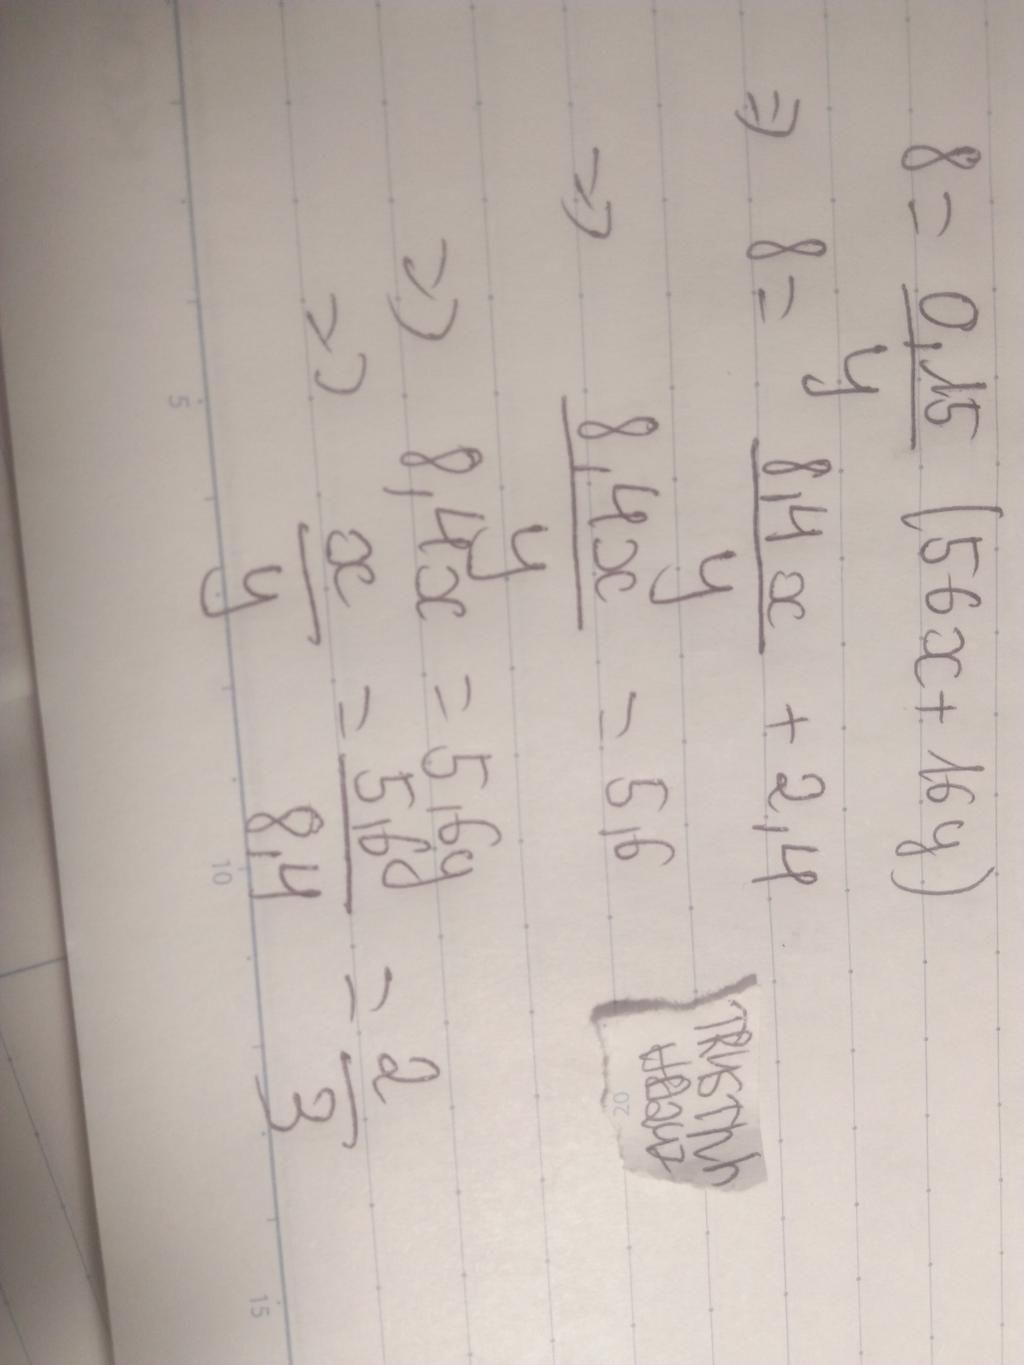 8 = 0,15/y (56x + 16y)
⇒ 8 = 8,4x/y + 2,4
⇒ 8,4x/y = 5,6
⇒ 8,4x = 5,6y
⇒ x/y = 5,6y/8,4 = 2/3
TRUSTHY
5
10
15
20